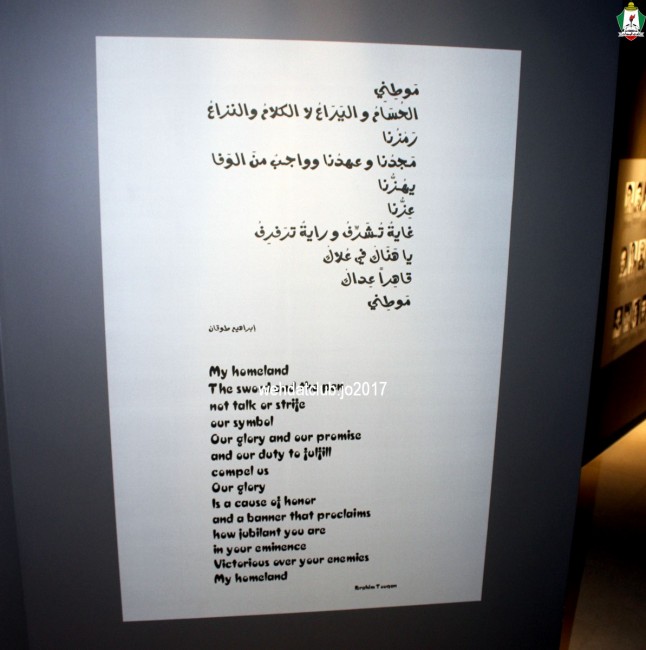 مَوطِنِي
الحُسَامُ و اليَرَاعُ لا الكلامُ والنزاعُ
رَمْزُنا
مَجدُنا و عهدُنا وواجبٌ منَ الوَفا
يهُزُّنا
عِزُّنا
غايةٌ تُشَرِّفُ و رايةٌ ترَفرِفُ
يا هَنَاكَ في عُلاكَ
قاهِراً عِداكَ
مَوطِنِي
إبراهيم طوقان
My homeland
The sword and the pen
not talk or strife
our symbol
Our glory and our promise
and our duty to fulfill
compel us
Our glory
Is a cause of honor
and a banner that proclaims
how jubilant you are
in your eminence
Victorious over your enemies
My homeland
Ibrahim Touqan
wehdatclub.jo2017